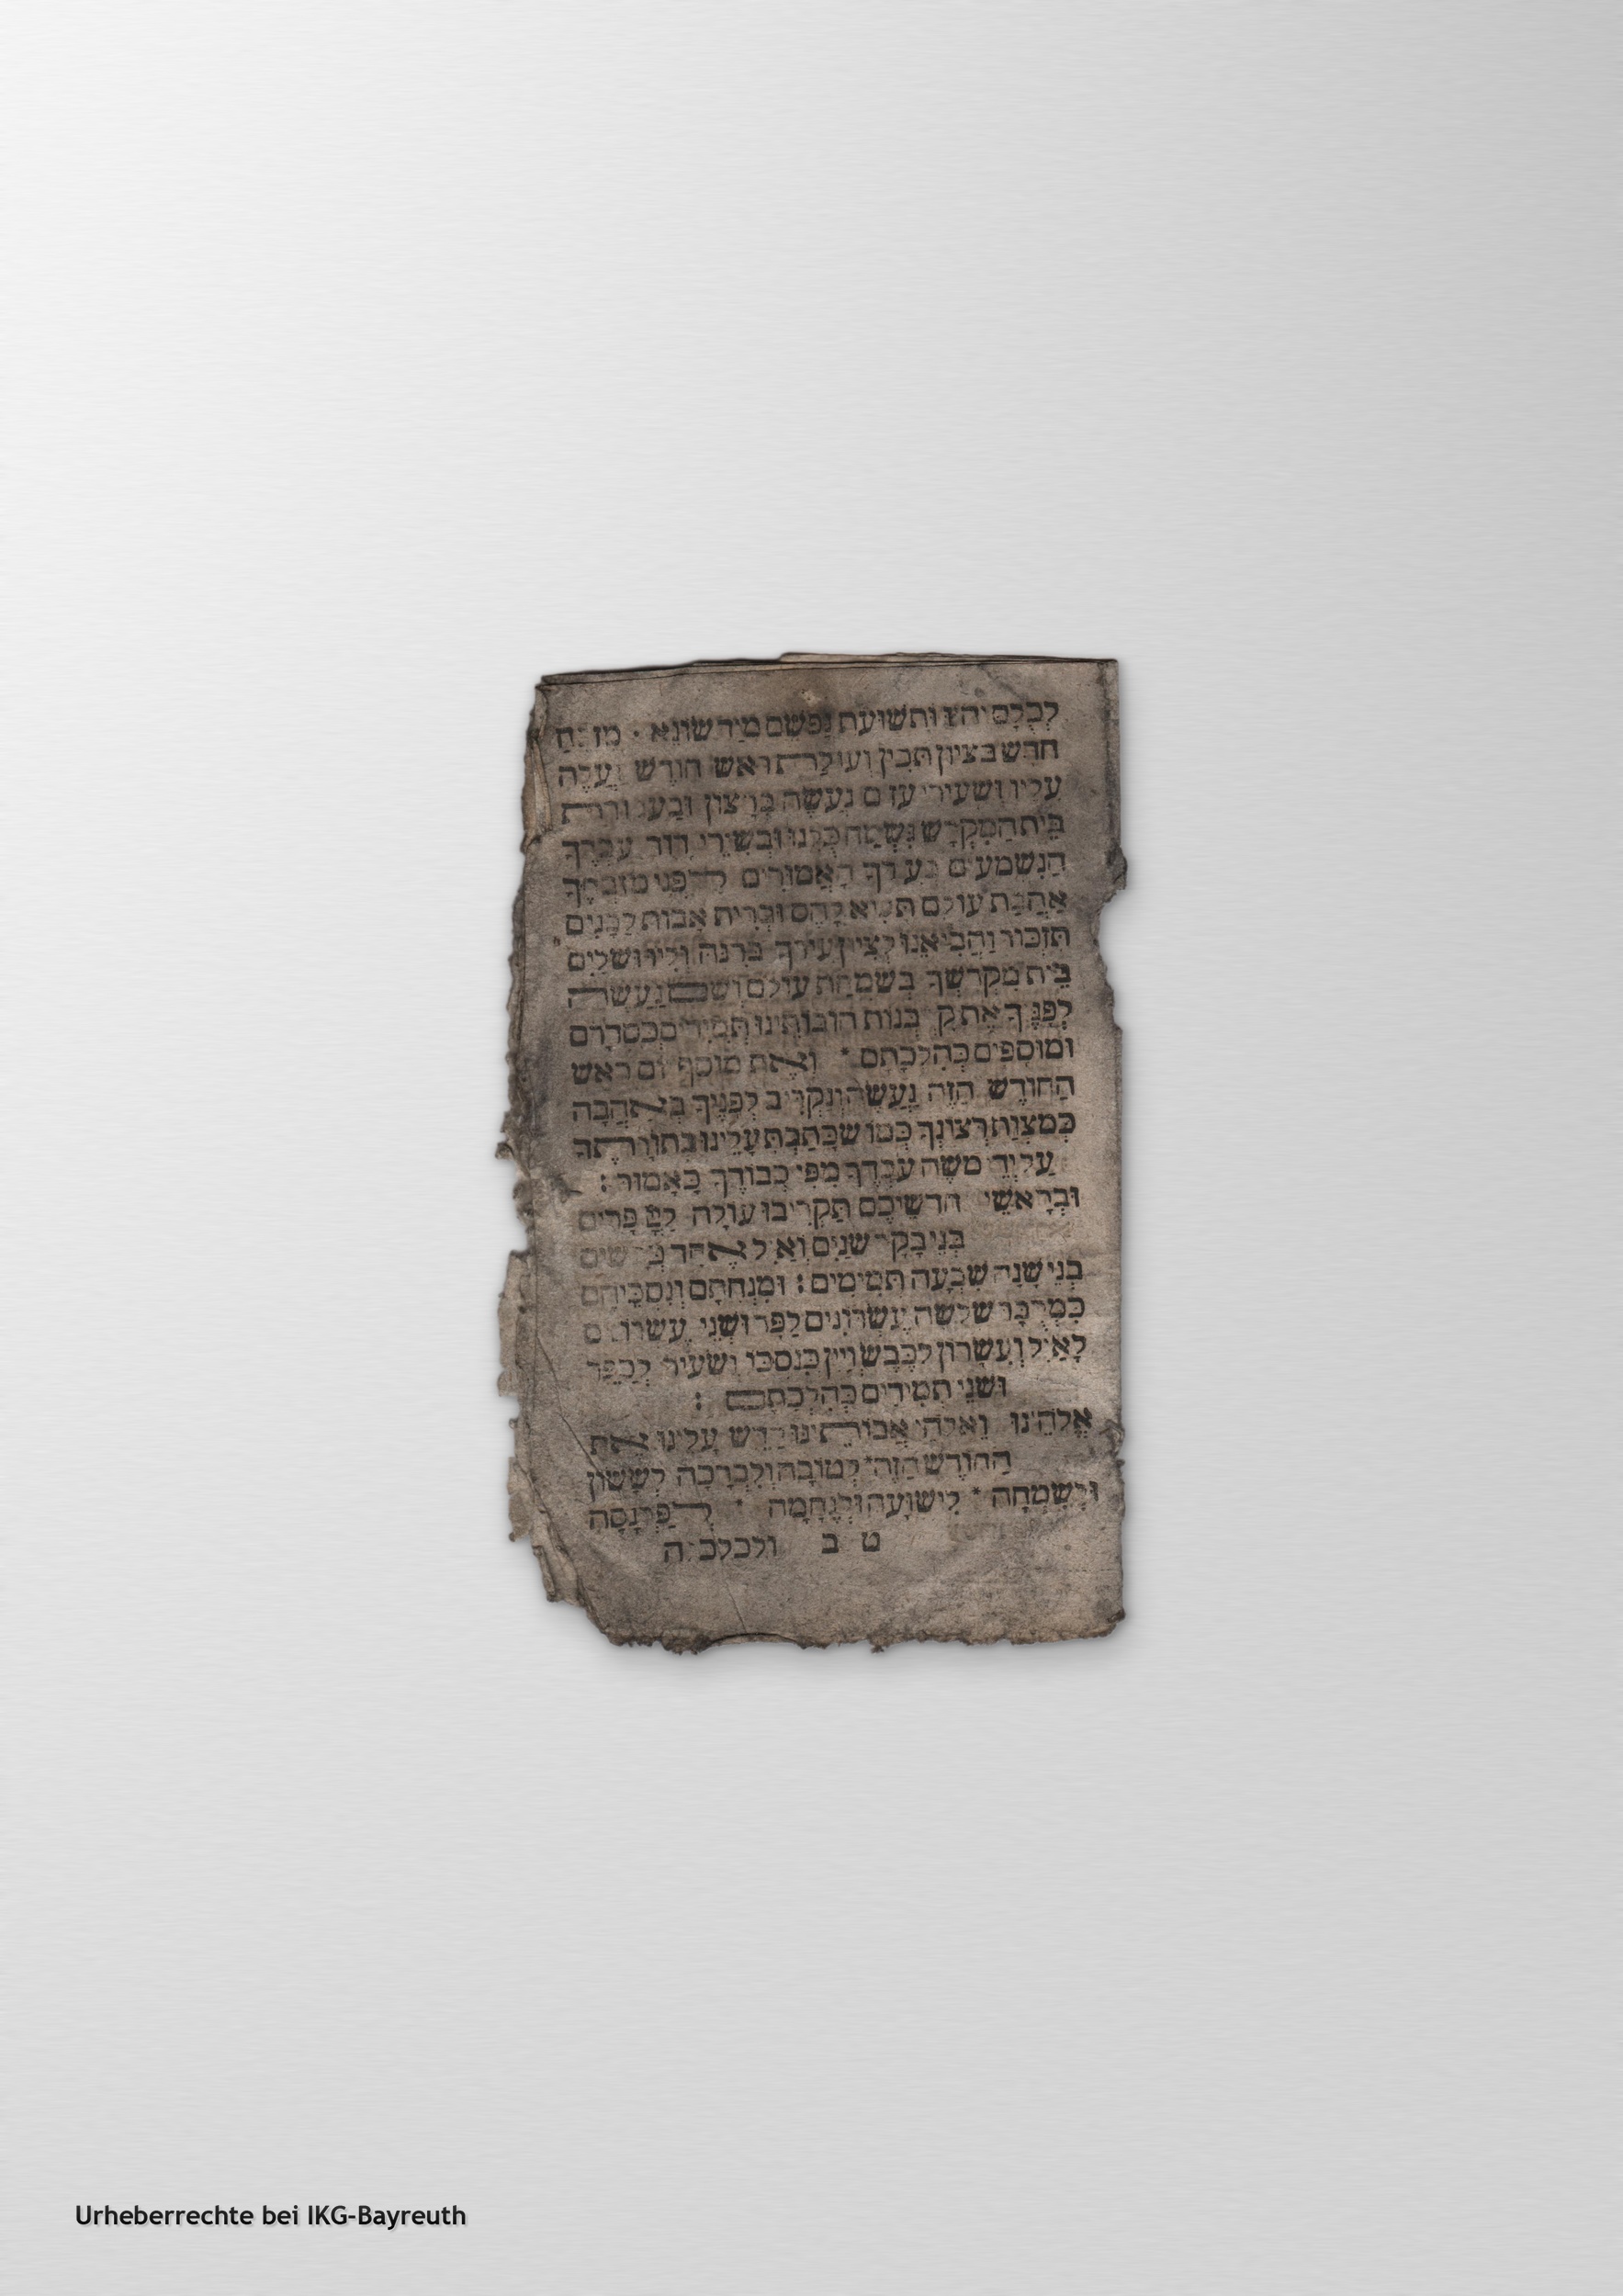 לְכֻלָּם יהיו ותשועת נַפְשָׁם מִיַד שׂוֹנֵא ·
חדש בציון תכין ועולת ראש חודש נעלה
עליו ושעירי עזים נעשה ברצון ובעבודת
בית המקדש נשמח כלנו ובשירי דוד עבדך
הנשמעים בעירך האמורים לפני מזבחך
אהבת עולם תביא להם וברית אבות לבנים
תזכור והביאנו לציון עירך ברנה ולירושלים
בית מקדשך בשמחת עולם ושם נעשה
לפניך את קרבנות חובותינו תמידים כסדרם
ומוספים כהלכתם * ואת מוסף יום ראש
החודש הזה נעשה ונקריב לפניך באהבה
כמצות רצונך כמו שכתבת עלינו בתורתך
על יד משה עבדך מפי כבודך כאמור :
ובראשי חדשיכם תקריבו עולה ליי פרים
בני בקר שנים ואיל אחד כבשים
בני שנה שבעה תמימים : ומנחתם ונסכיהם
כמדבר שלשה עשרונים לפר ושני עשרונים
לאיל ועשרון לכבש ויין כנסכו ושעיר לכפר
ושני תמידים כהלכתם :
אלהינו ואלהי אבותינו חדש עלינו את
החודש הזה * לטובה ולברכה לששון
ולשמחה * לישועה ולנחמה · לפרנסה
ט ב ולכלכלה
Urheberrechte bei IKG-Bayreuth